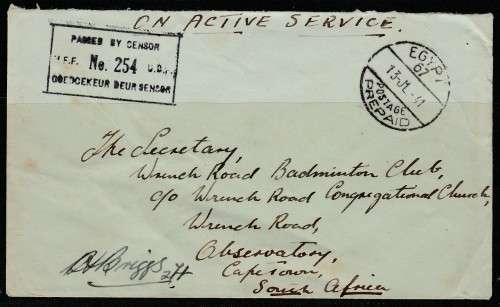 ON ACTIVE SERVICE.
PASSED BY CENSOR
U.D.F. No. 254 U.D.F.
GOEDGEKEUR DEUR SENSOR
EGYPT
67
13·JL·41
POSTAGE
PREPAID
The Secretary,
Wrench Road Badminton Club,
c/o Wrench Road Congregational Church,
Wrench Road,
Observatory,
Cape Town,
South Africa
Briggs